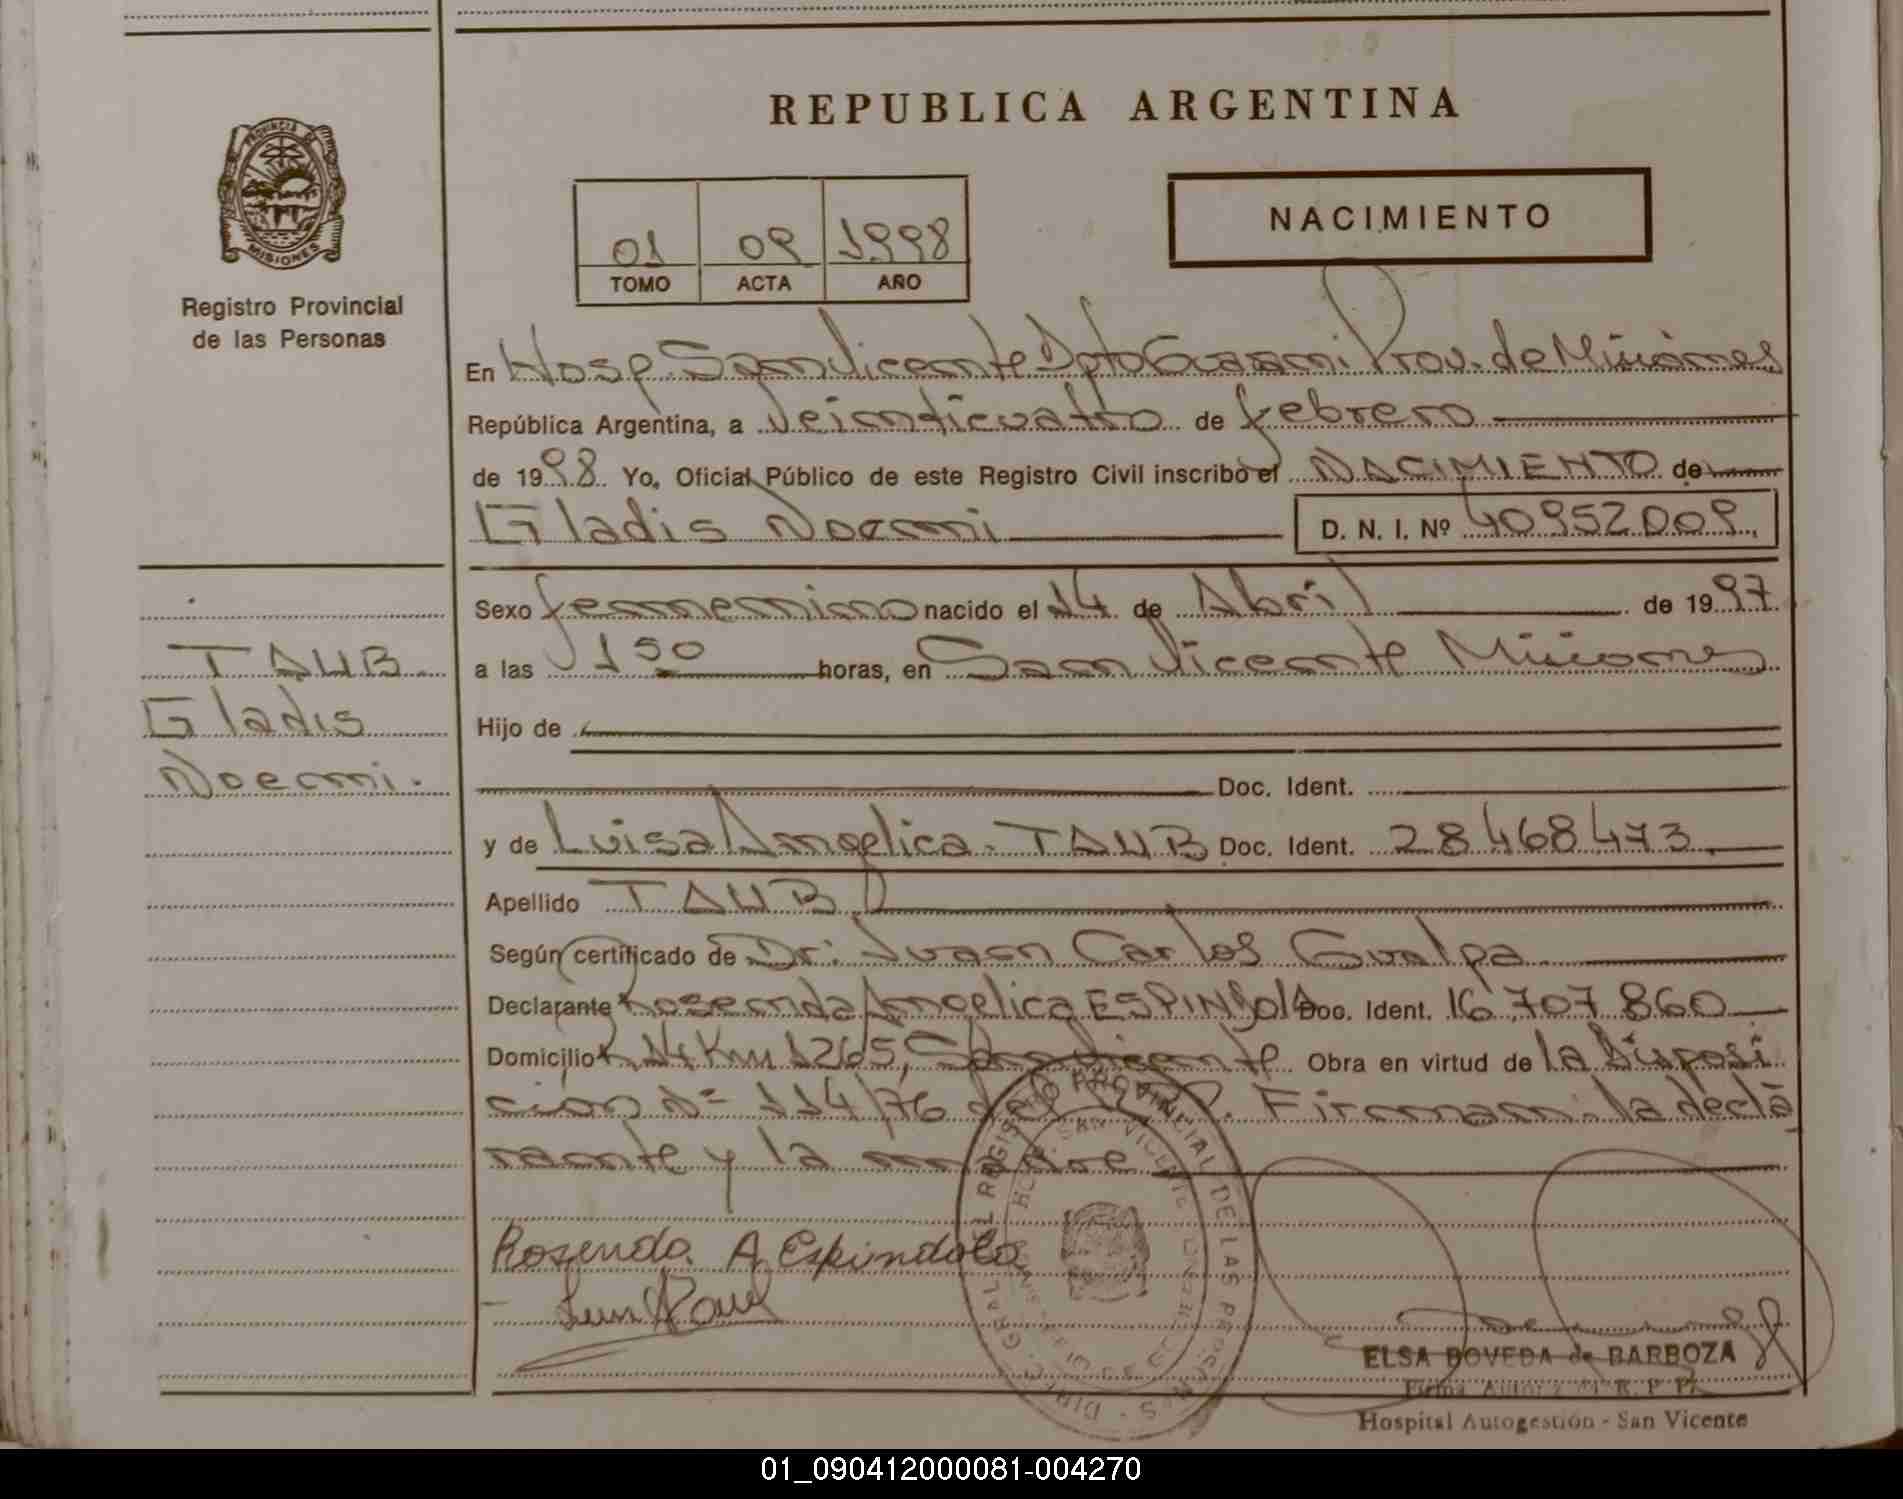 REPUBLICA ARGENTINA
PROVINCIA DE
MISIONES
Registro Provincial
de las Personas
01 09 1998
TOMO ACTA AÑO
NACIMIENTO
En Hosp. San Vicente Dpto Guarani Prov. de Misiones
República Argentina, a Veinticuatro de febrero
de 1998 Yo, Oficial Público de este Registro Civil inscribo el NACIMIENTO de
Gladis Noemi D. N. I. Nº 40952009
Sexo femenino nacido el 14 de Abril de 1997
a las 1 50 horas, en San Vicente Misiones
TAUB
Gladis
Noemi.
Hijo de
Doc. Ident.
y de Luisa Angelica TAUB Doc. Ident. 28468473
Apellido TAUB
Según certificado de Dr: Juan Carlos Gualpa
Declarante Rosenda Angelica ESPINDOLA Doc. Ident. 16.707.860
Domicilio R 14 Km 1265, San Vicente Obra en virtud de la Disposi
ción Nº 114/76 del R.P.P. Firman: la decla
rante y la madre
Rosenda. A Espindola
ELSA BOVEDA de BARBOZA
Firma Autoriz. R. P. P.
Hospital Autogestión - San Vicente
01_090412000081-004270